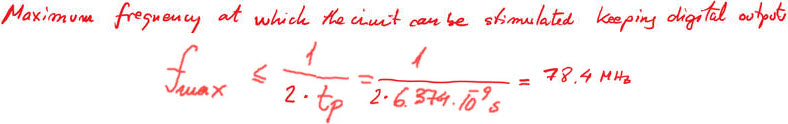 Maximum frequency at which the circuit can be stimulated keeping digital outputs
f_max ≤ 1 / (2 · t_p) = 1 / (2 · 6.374 · 10^-9 s) = 78.4 MHz